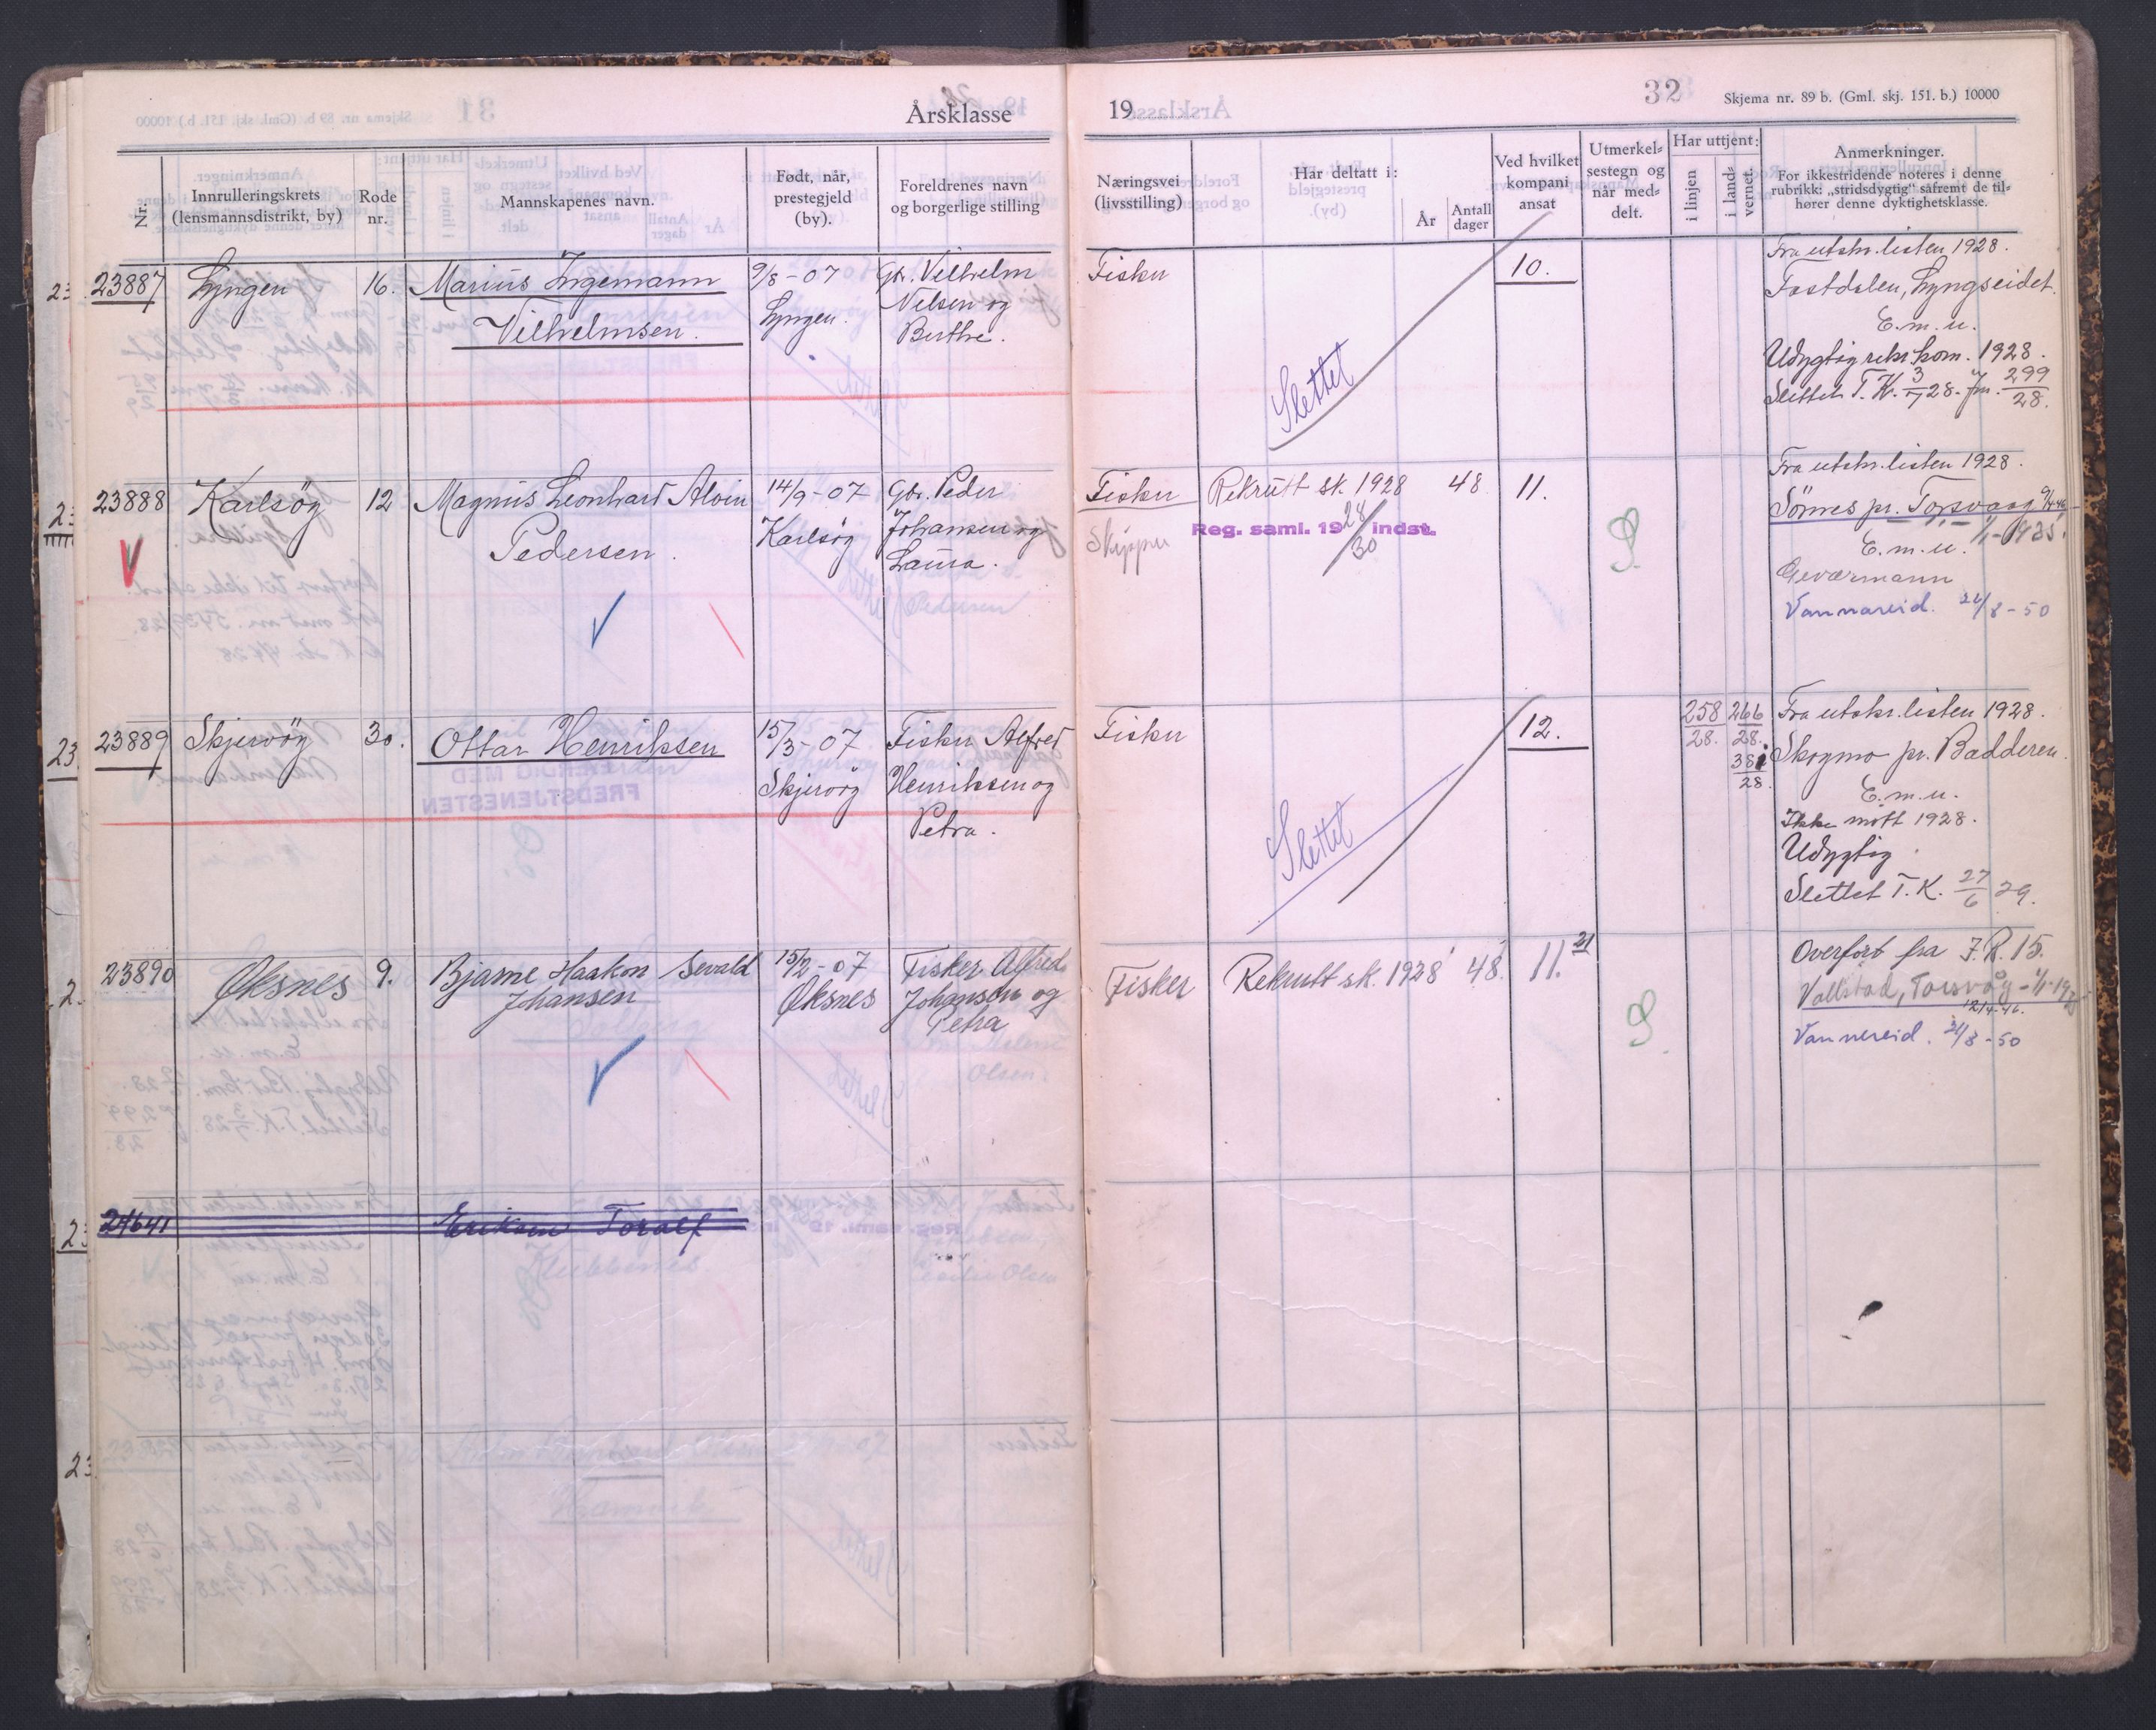 Årsklasse
19
32
Skjema nr. 89 b. (Gml. skj. 151. b.) 10000
Nr.
Innrulleringskrets
(lensmannsdistrikt, by)
Rode
nr.
Mannskapenes navn.
Født, når,
prestegjeld
(by).
Foreldrenes navn
og borgerlige stilling
Næringsvei
(livsstilling)
Har deltatt i:
År
Antall
dager
Ved hvilket
kompani
ansat
Utmerkel-
sestegn og
når med-
delt.
Har uttjent:
i linjen
i land-
vernet.
Anmerkninger.
For ikkestridende noteres i denne
rubrikk: „stridsdygtig" såfremt de til-
hører denne dyktighetsklasse.
23887
Lyngen
16.
Marius Ingemann
Vilhelmsen.
9/8-07
Lyngen.
Gbr. Vilhelm
Nelsen og
Berthe.
Fisker
Slettet
10.
Fra utskr.listen 1928.
Fastdalen, Lyngseidet.
E.m.u.
Udygtig rekr.kom. 1928.
Slettet T.K. 3/7 28. Jnr. 299/28.
23888
Karlsöy
12
Magnus Leonhard Alvin
Pedersen.
14/9-07
Karlsöy
Gbr. Peder
Johansen og
Laura.
Fisker
Skipper
Rekrutt sk. 1928
48
Reg. saml. 1928/30 indst.
11.
Fra utskr.listen 1928.
Sörnes pr. Torsvaag
1/1-1935.
E.m.u.
Geværmann
Vannareid. 21/8-50
23889
Skjervöy
30.
Ottar Henriksen
15/3-07
Skjervöy
Fisker Alfred
Henriksen og
Petra.
Fisker
Slettet
12.
258
28.
266
28.
381
28.
Fra utskr.listen 1928.
Skogmo pr. Badderen.
E.m.u.
Ikke mött 1928.
Udygtig
Slettet T.K. 27/6 29.
23890
Øksnes
9.
Bjarne Haakon Sevald
Johansen
15/2-07
Øksnes
Fisker Alfred
Johansen og
Petra
Fisker
Rekrutt sk. 1928
48.
11.
21
Overført fra I.R. 15.
Vallstad, Torsvåg
12/4-46.
Vannereid. 21/8-50
24641
Eriksen Toralf